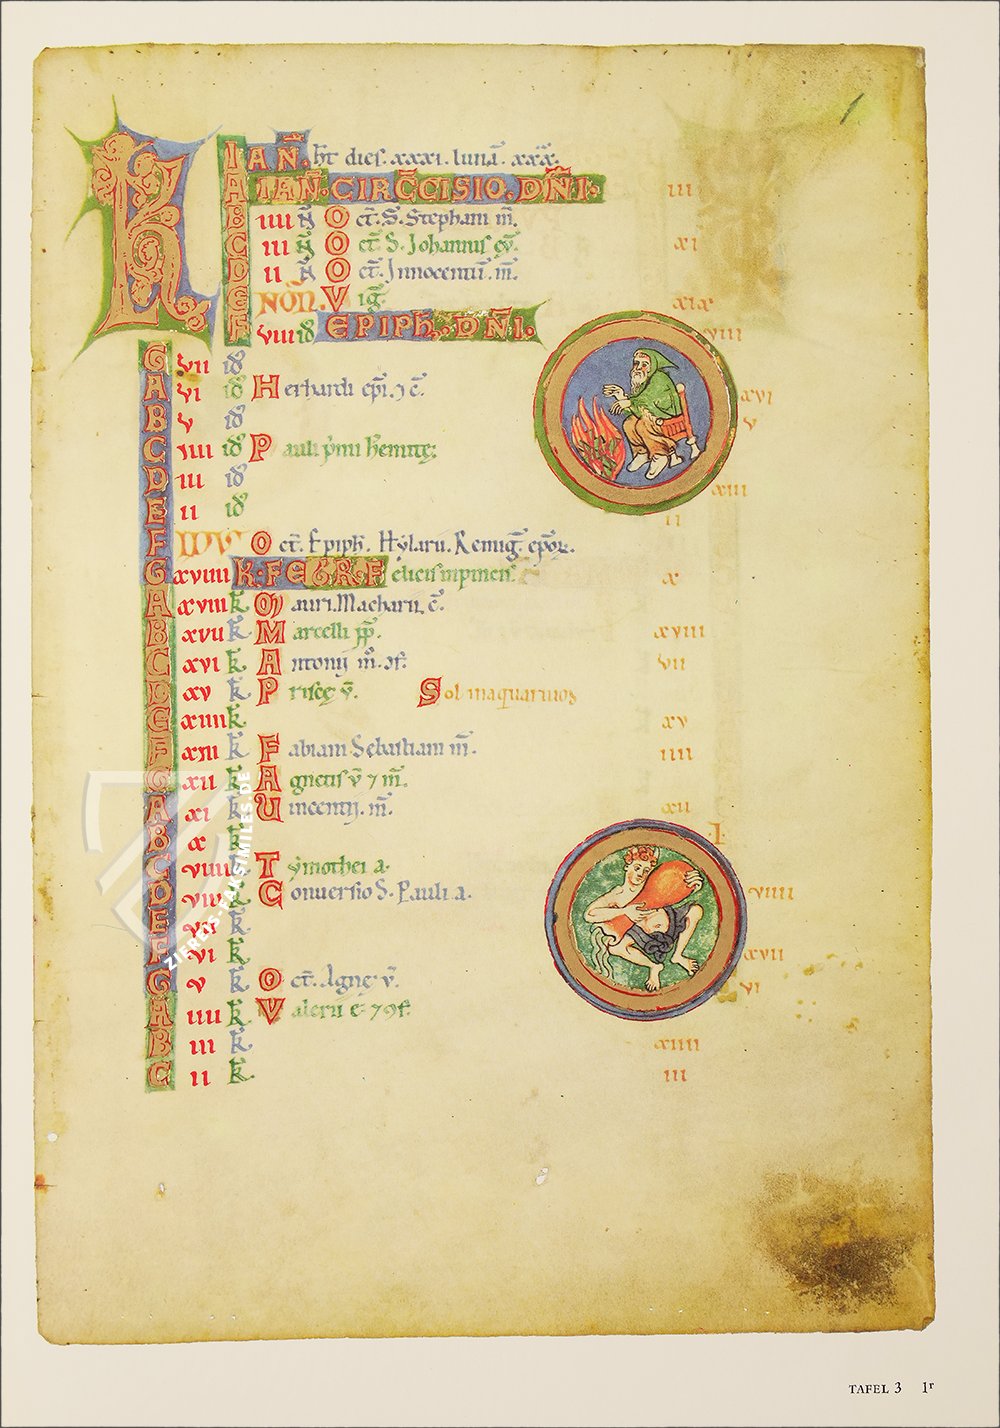 KL IAÑ. ht dies. xxxi. lunā. xxx.
A IAÑ. CIRCCISIO. DÑI. III
B IIII N OCT. S. Stephani m̄.
C III N OCT. S. Johannis eṽ. XI
D II N OCT. Innocentū. m̄.
E NON. Vig XIX
F VIII id EPIPH. DÑI. VIII
G VII id
A VI id Herhardi epi. ⁊ c̄. XVI
B V id V
C IIII id Pauli pimi heremitę;
D III id XIII
E II id II
F IDVS OCT. Epiph. Hylarii. Remig. epor.
G XVIIII K. FEBR. Felicis inpincis. X
A XVIII K Mauri. Macharii. c̄.
B XVII K Marcelli pp. XVIII
C XVI K Antonij m̄. VII
D XV K Priscę v̄. Sol in aquarium
E XIIII K XV
F XIII K Fabiani Sebastiani m̄. IIII
G XII K Agnetis v̄ ⁊ m̄.
A XI K Uincentij. m̄. XII
B X K I
C VIIII K Tymothei a. VIIII
D VIII K Conuersio S. Pauli a.
E VII K XVII
F VI K VI
G V K OCT. Agnę v̄.
A IIII K Valerii
B III K XIIII
C II K III
ZIERER-FAKSIMILES.DE
TAFEL 3 1r